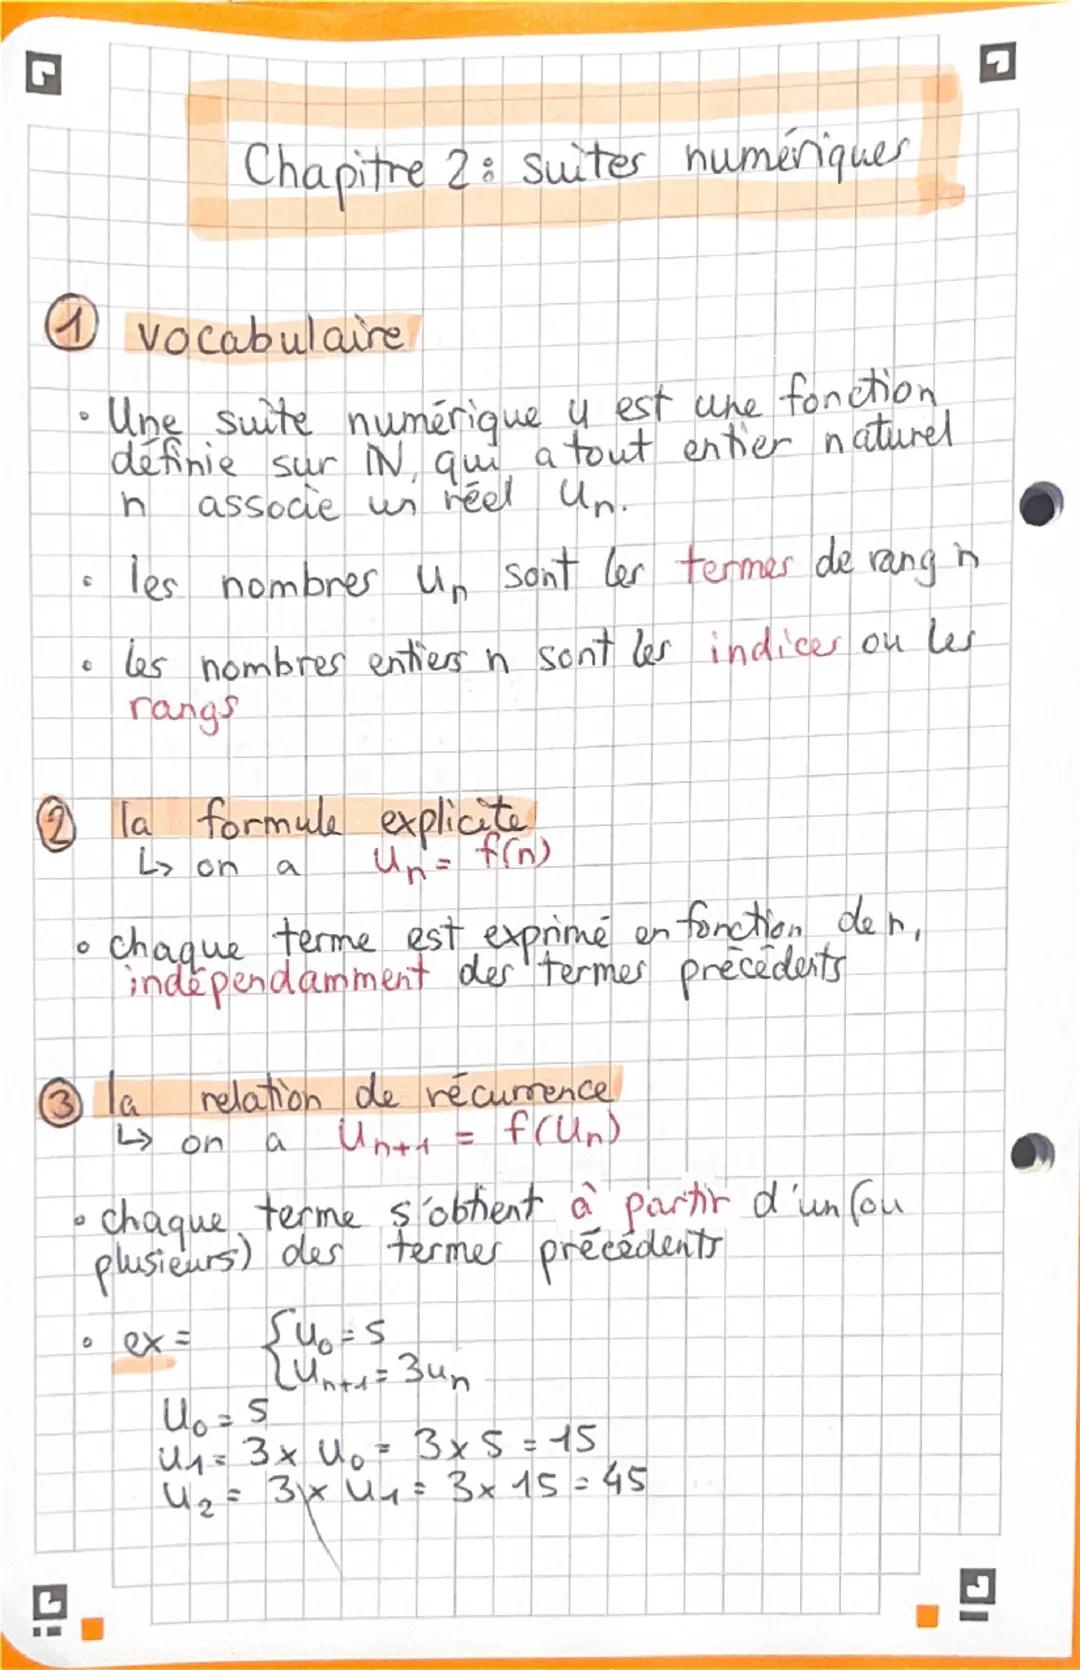 Chapitre 2 : suites numériques
① vocabulaire
• Une suite numérique u est une fonction
définie sur ℕ, qui a tout entier naturel
n associe un réel Un.
• les nombres Un sont les termes de rang n
• les nombres entiers n sont les indices ou les
rangs
② la formule explicite
↳ on a Un = f(n)
• chaque terme est exprimé en fonction de n,
indépendamment des termes précédents
③ la relation de récurrence
↳ on a Un+1 = f(Un)
• chaque terme s'obtient à partir d'un (ou
plusieurs) des termes précédents
• ex = { U0 = 5
{ Un+1 = 3un
U0 = 5
U1 = 3 × U0 = 3 × 5 = 15
U2 = 3 × U1 = 3 × 15 = 45